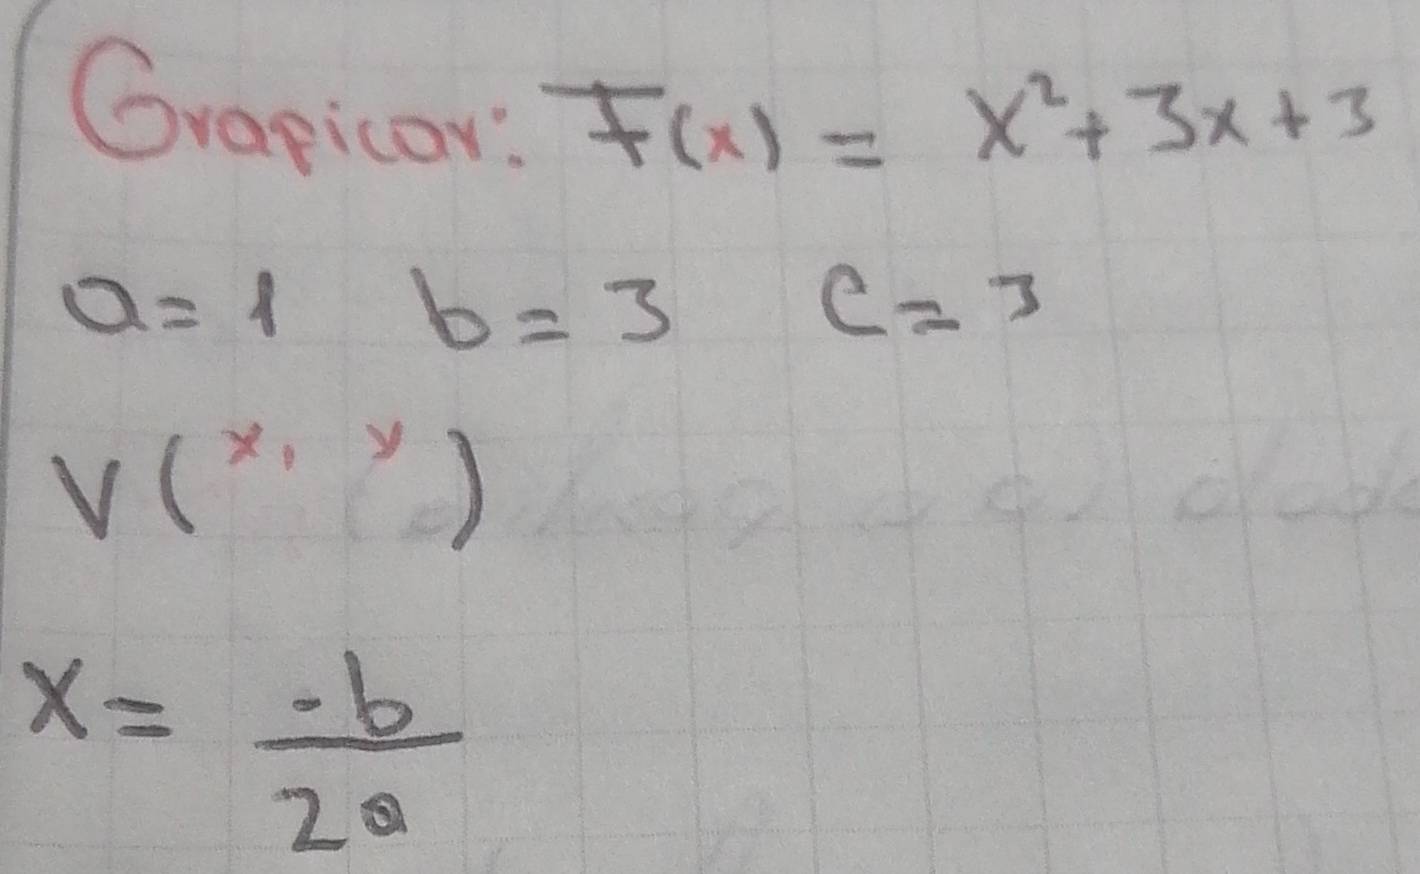 Grapicar: F(x) = x² + 3x + 3
a = 1 b = 3 c = 3
V( x, y )
x = -b
2a